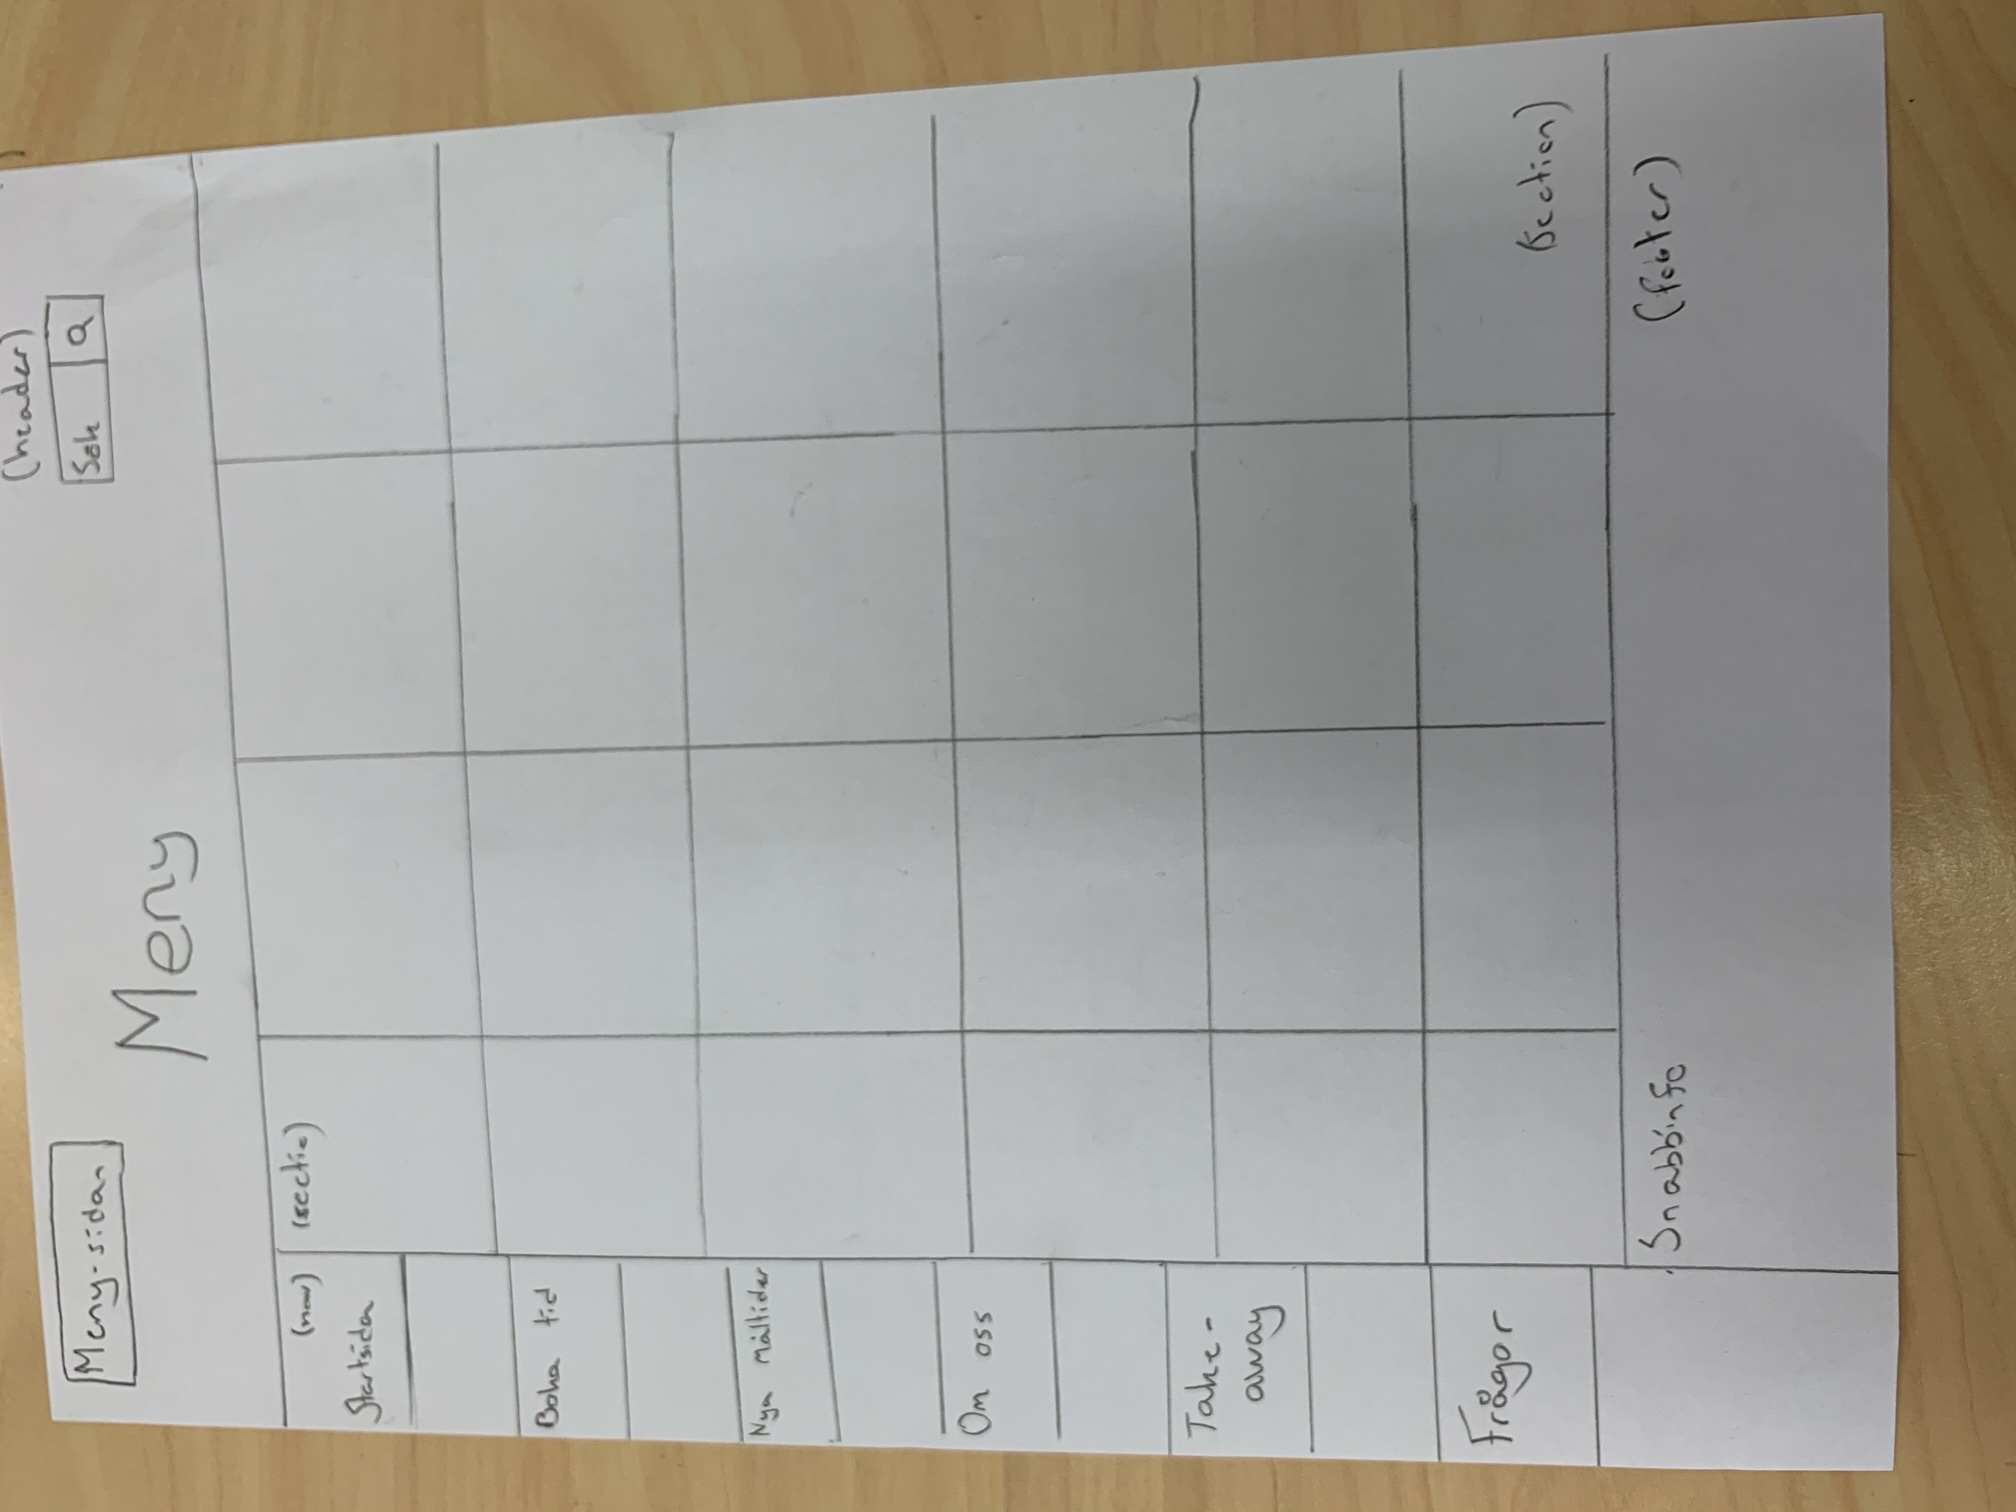 (header)
Meny-sidan
Sök
Meny
(nav)
(sectio)
Startsidan
Boka tid
Nya måltider
Om oss
Take-
away
Frågor
(section)
Snabbinfo
(footer)